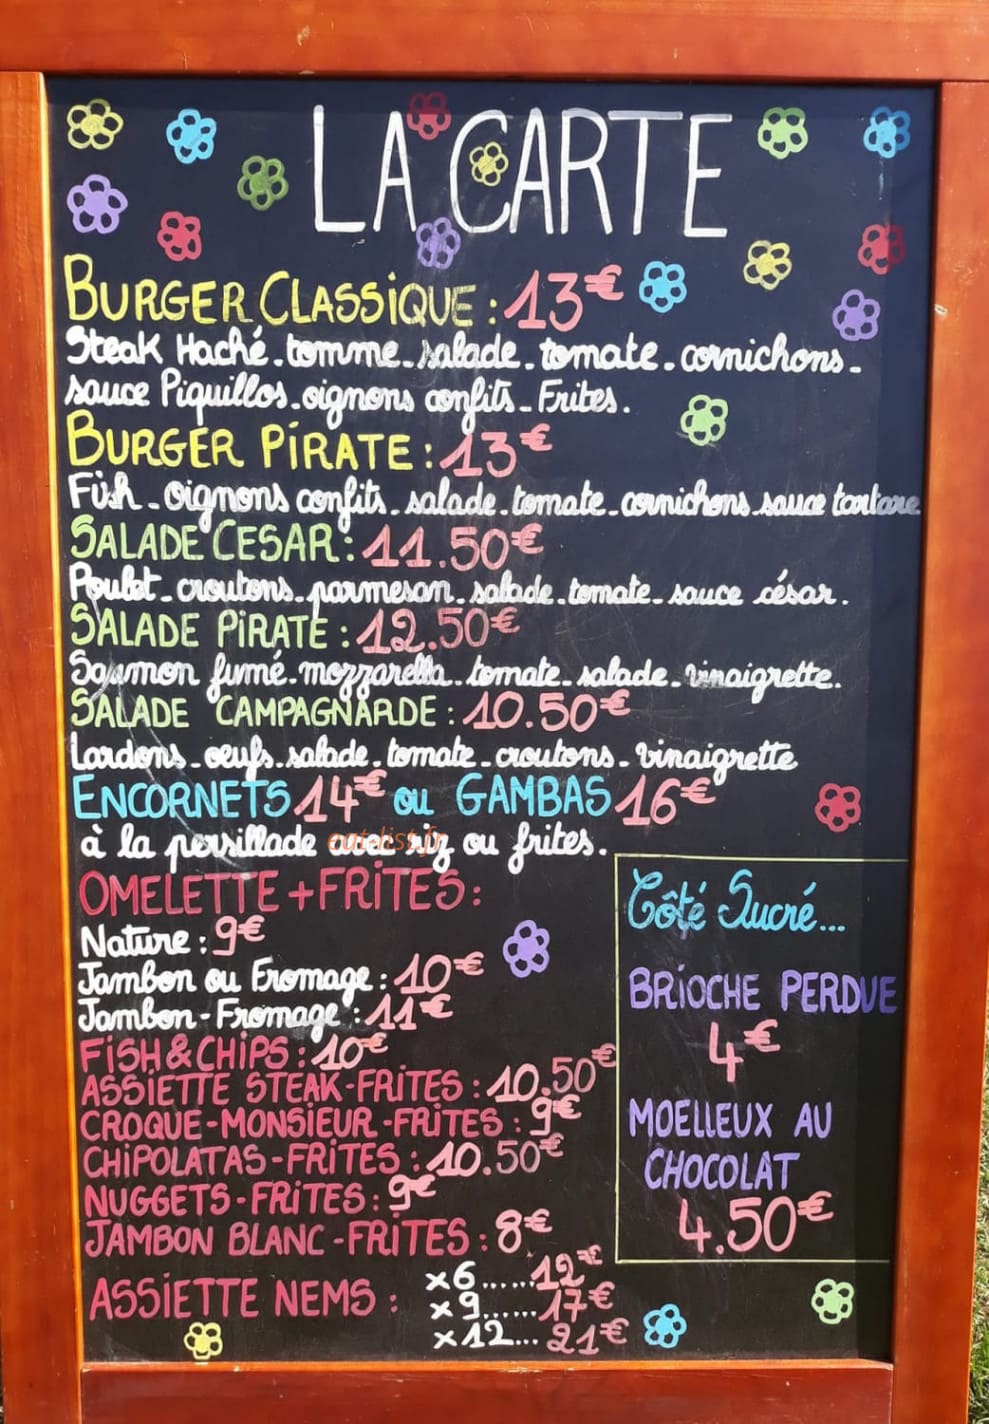 LA CARTE
BURGER CLASSIQUE : 13€
Steak Haché - tomme - salade - tomate - cornichons -
sauce Piquillos - oignons confits - Frites.
BURGER PIRATE : 13€
Fish - Oignons confits - salade - tomate - cornichons - sauce tartare
SALADE CESAR : 11.50€
Poulet - croutons - parmesan - salade - tomate - sauce césar.
SALADE PIRATE : 12.50€
Saumon fumé - mozzarella - tomate - salade - vinaigrette.
SALADE CAMPAGNARDE : 10.50€
Lardons - oeufs - salade - tomate - croutons - vinaigrette
ENCORNETS 14€ ou GAMBAS 16€
à la persillade avec riz ou frites.
eat-list.fr
OMELETTE + FRITES :
Nature : 9€
Jambon ou Fromage : 10€
Jambon - Fromage : 11€
FISH & CHIPS : 10€
ASSIETTE STEAK - FRITES : 10.50€
CROQUE - MONSIEUR - FRITES : 9€
CHIPOLATAS - FRITES : 10.50€
NUGGETS - FRITES : 9€
JAMBON BLANC - FRITES : 8€
ASSIETTE NEMS :
x6......12€
x9......17€
x12...21€
Côté Sucré...
BRIOCHE PERDUE
4€
MOELLEUX AU
CHOCOLAT
4.50€